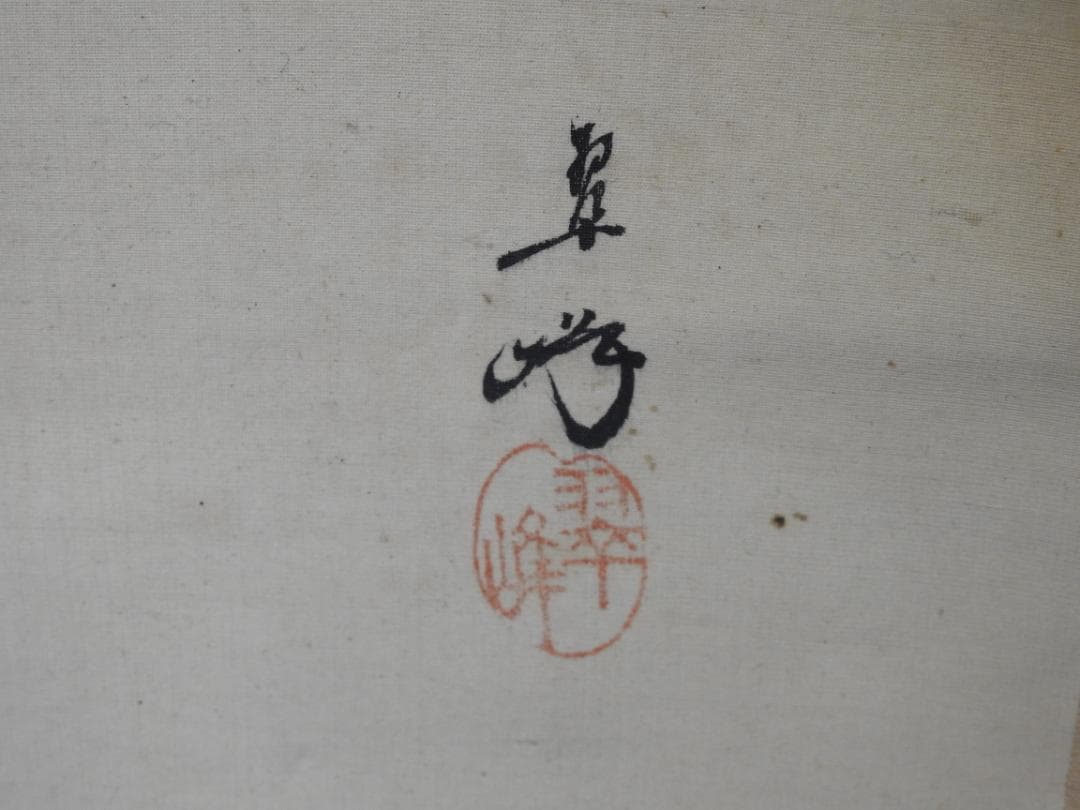 翠峰
翠峰